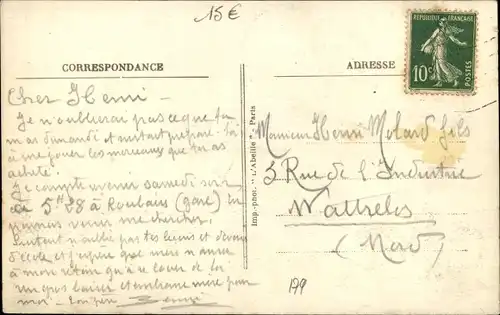 15€
CORRESPONDANCE
ADRESSE
RÉPUBLIQUE FRANÇAISE
10c
POSTES
Cher Henri -
Je n'oublierai pas ce que tu
m'as demandé et surtout prépare-toi
à me jouer les morceaux que tu as
acheté.
Je compte venir samedi soir
5H28 à Roubaix (gare) tu
pourras venir me chercher.
Surtout n'oublie pas tes leçons et devoirs
d'école et j'espère que
à mon retour
un gros baiser et embrasse mère pour
moi - Ton père
Imp.-phot. "L'Abeille", Paris
Monsieur Henri Molard fils
3 Rue de l'Industrie
Wattrelos
(Nord)
199